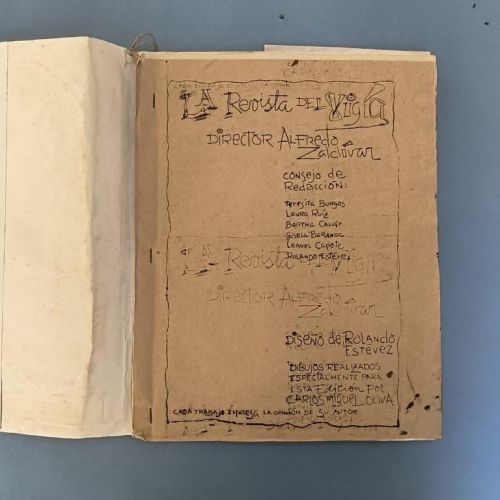 LA Revista DEL Vigía
DIRECTOR ALFREDO
Zaldívar
CONSEJO de
Redacción:
Teresita Burgos
Laura Ruiz
Bertha Caluff
Gisela Baranda
Leonel Capote
Rolando Estévez
LA Revista
DIRECTOR ALFREDO
Zaldívar
Diseño de Rolando
Estévez
DIBUJOS REALIZADOS
ESPECIALMENTE PARA
ESTA Edición Por
CARLOS MIGUEL OLIVA
CADA TRABAJO EXPRESA LA OPINIÓN DE SU AUTOR